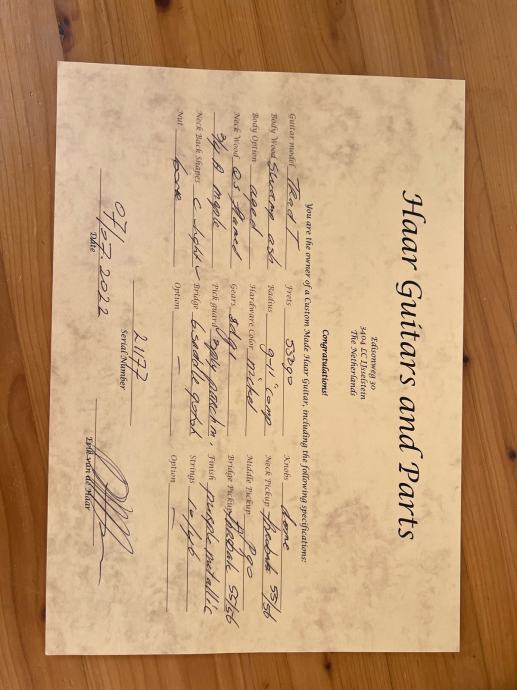 Haar Guitars and Parts
Edisonweg 30
3404 LC IJsselstein
The Netherlands
Congratulations!
You are the owner of a Custom Made Haar Guitar, including the following specifications:
Guitar model Trad T Frets 55090 Knobs dome
Body Wood Swamp ash Radius 9-11 comp Neck Pickup
Body Option aged Hardware Color nickel Middle Pickup
Neck Wood Gears Bridge Pickup
3/4 A maple Pick guard Finish purple metallic
Neck Back Shapes C Bridge 6 saddle gotoh Strings
Nut bone Option – Option –
07/07.2022 2177
Date Serial Number Erik van de Haar